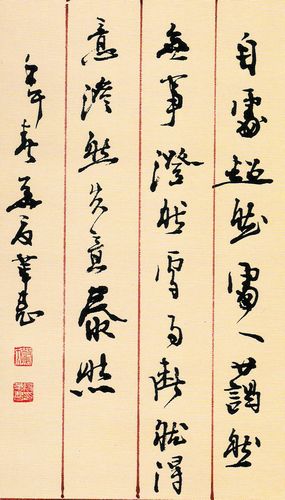 自處超然處人藹然
無事澄然處事斷然得
意淡然失意泰然
午春